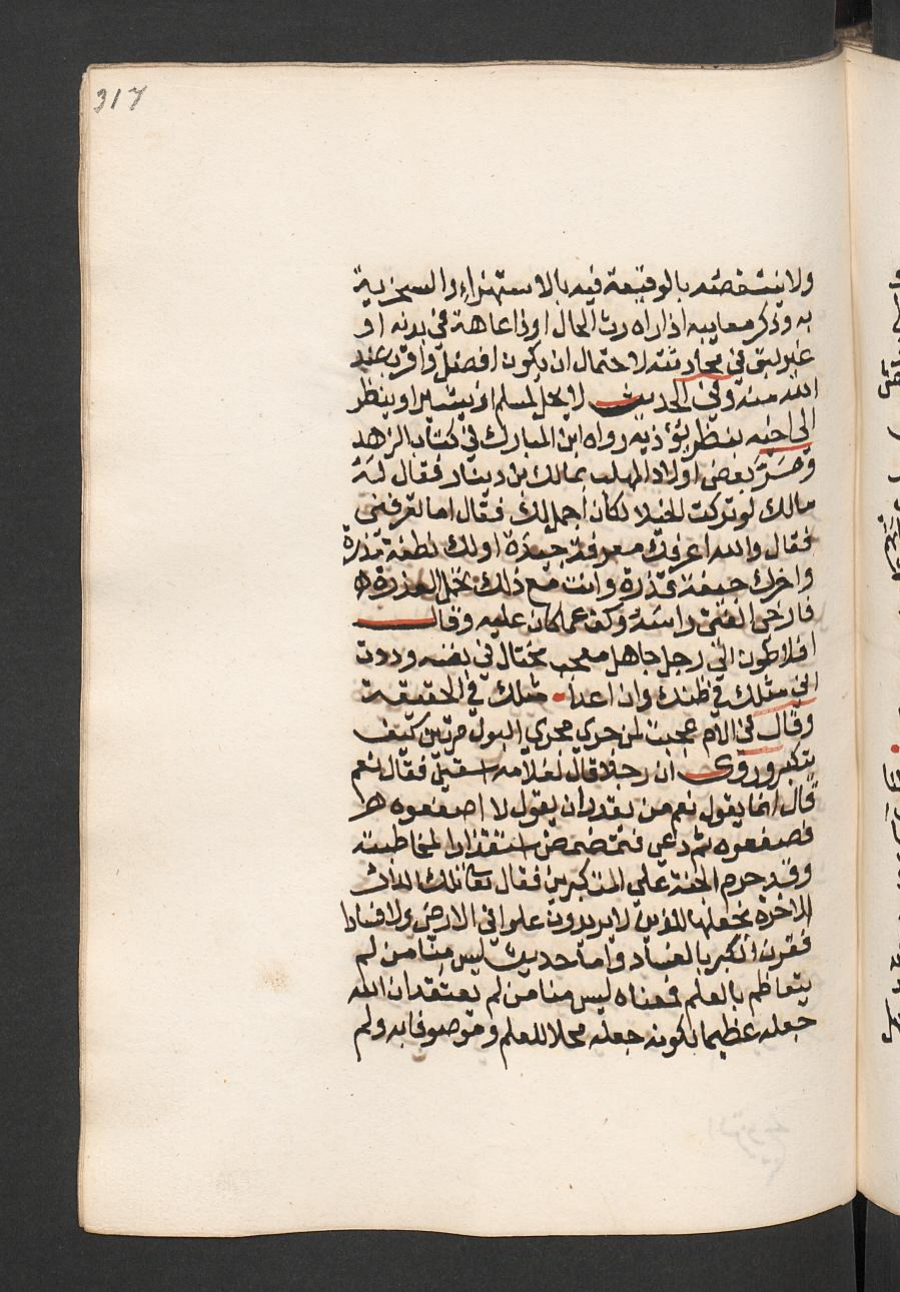 317
ولا ينتقصته بالوقيعة فيه بالاستهزاء والسخرية
به وذكر معايبه اذا راه رث الحال او ذا عاهة في بدنه او
غير لبق في محادثته لاحتمال ان يكون افضل واقرب عند
الله منه وفي الحديث لا يحل لمسلم ان يشير او ينظر
الى اخيه بنظر يؤذيه رواه ابن المبارك في كتاب الزهد
ومر بعض اولاد المهلب بمالك بن دينار فقال له
مالك لو تركت الخيلا لكان اجمل لك فقال اما تعرفني
فقال والله اعرفك معرفة جيدة اولك نطفة مذرة
واخرك جيفة قذرة وانت مع ذلك تحمل العذرة
فارخى الفتى راسه وكف عما كان عليه وقال
افلاطون الى رجل جاهل معجب مختال في نفسه وددت
اني مثلك في ظنك وان اعدا مثلك في الحقيقة
وقال في الام عجبت لمن جرى مجرى البول مرتين كيف
يتكبر وروى ان رجلا قال لغلامه اسقني فقال نعم
قال انما يقول نعم من يقدر ان يقول لا اصفعوه
فصفعوه ثم دعى فتمضمض استقذارا لمخاطبته
وقد حرم الجنة على المتكبرين فقال تعا تلك الدار
الاخرة نجعلها للذين لا يريدون علوا في الارض ولا فسادا
فقرن الكبر بالفساد واما حديث ليس منا من لم
يتعاظم بالعلم فمعناه ليس منا من لم يعتقد ان الله
جعله عظيما بكونه جعله محلا للعلم وموصوفا به ولم